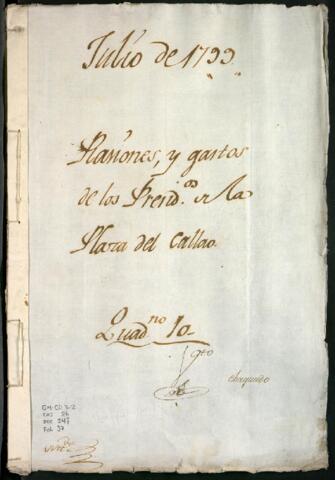 Julio de 1799
Raciones, y gastos
de los Presid.os de la
Plaza del Callao
Quad.no 10
chequeado
GM-CO 2-2
CAJ 26
DOC 247
Fol 37